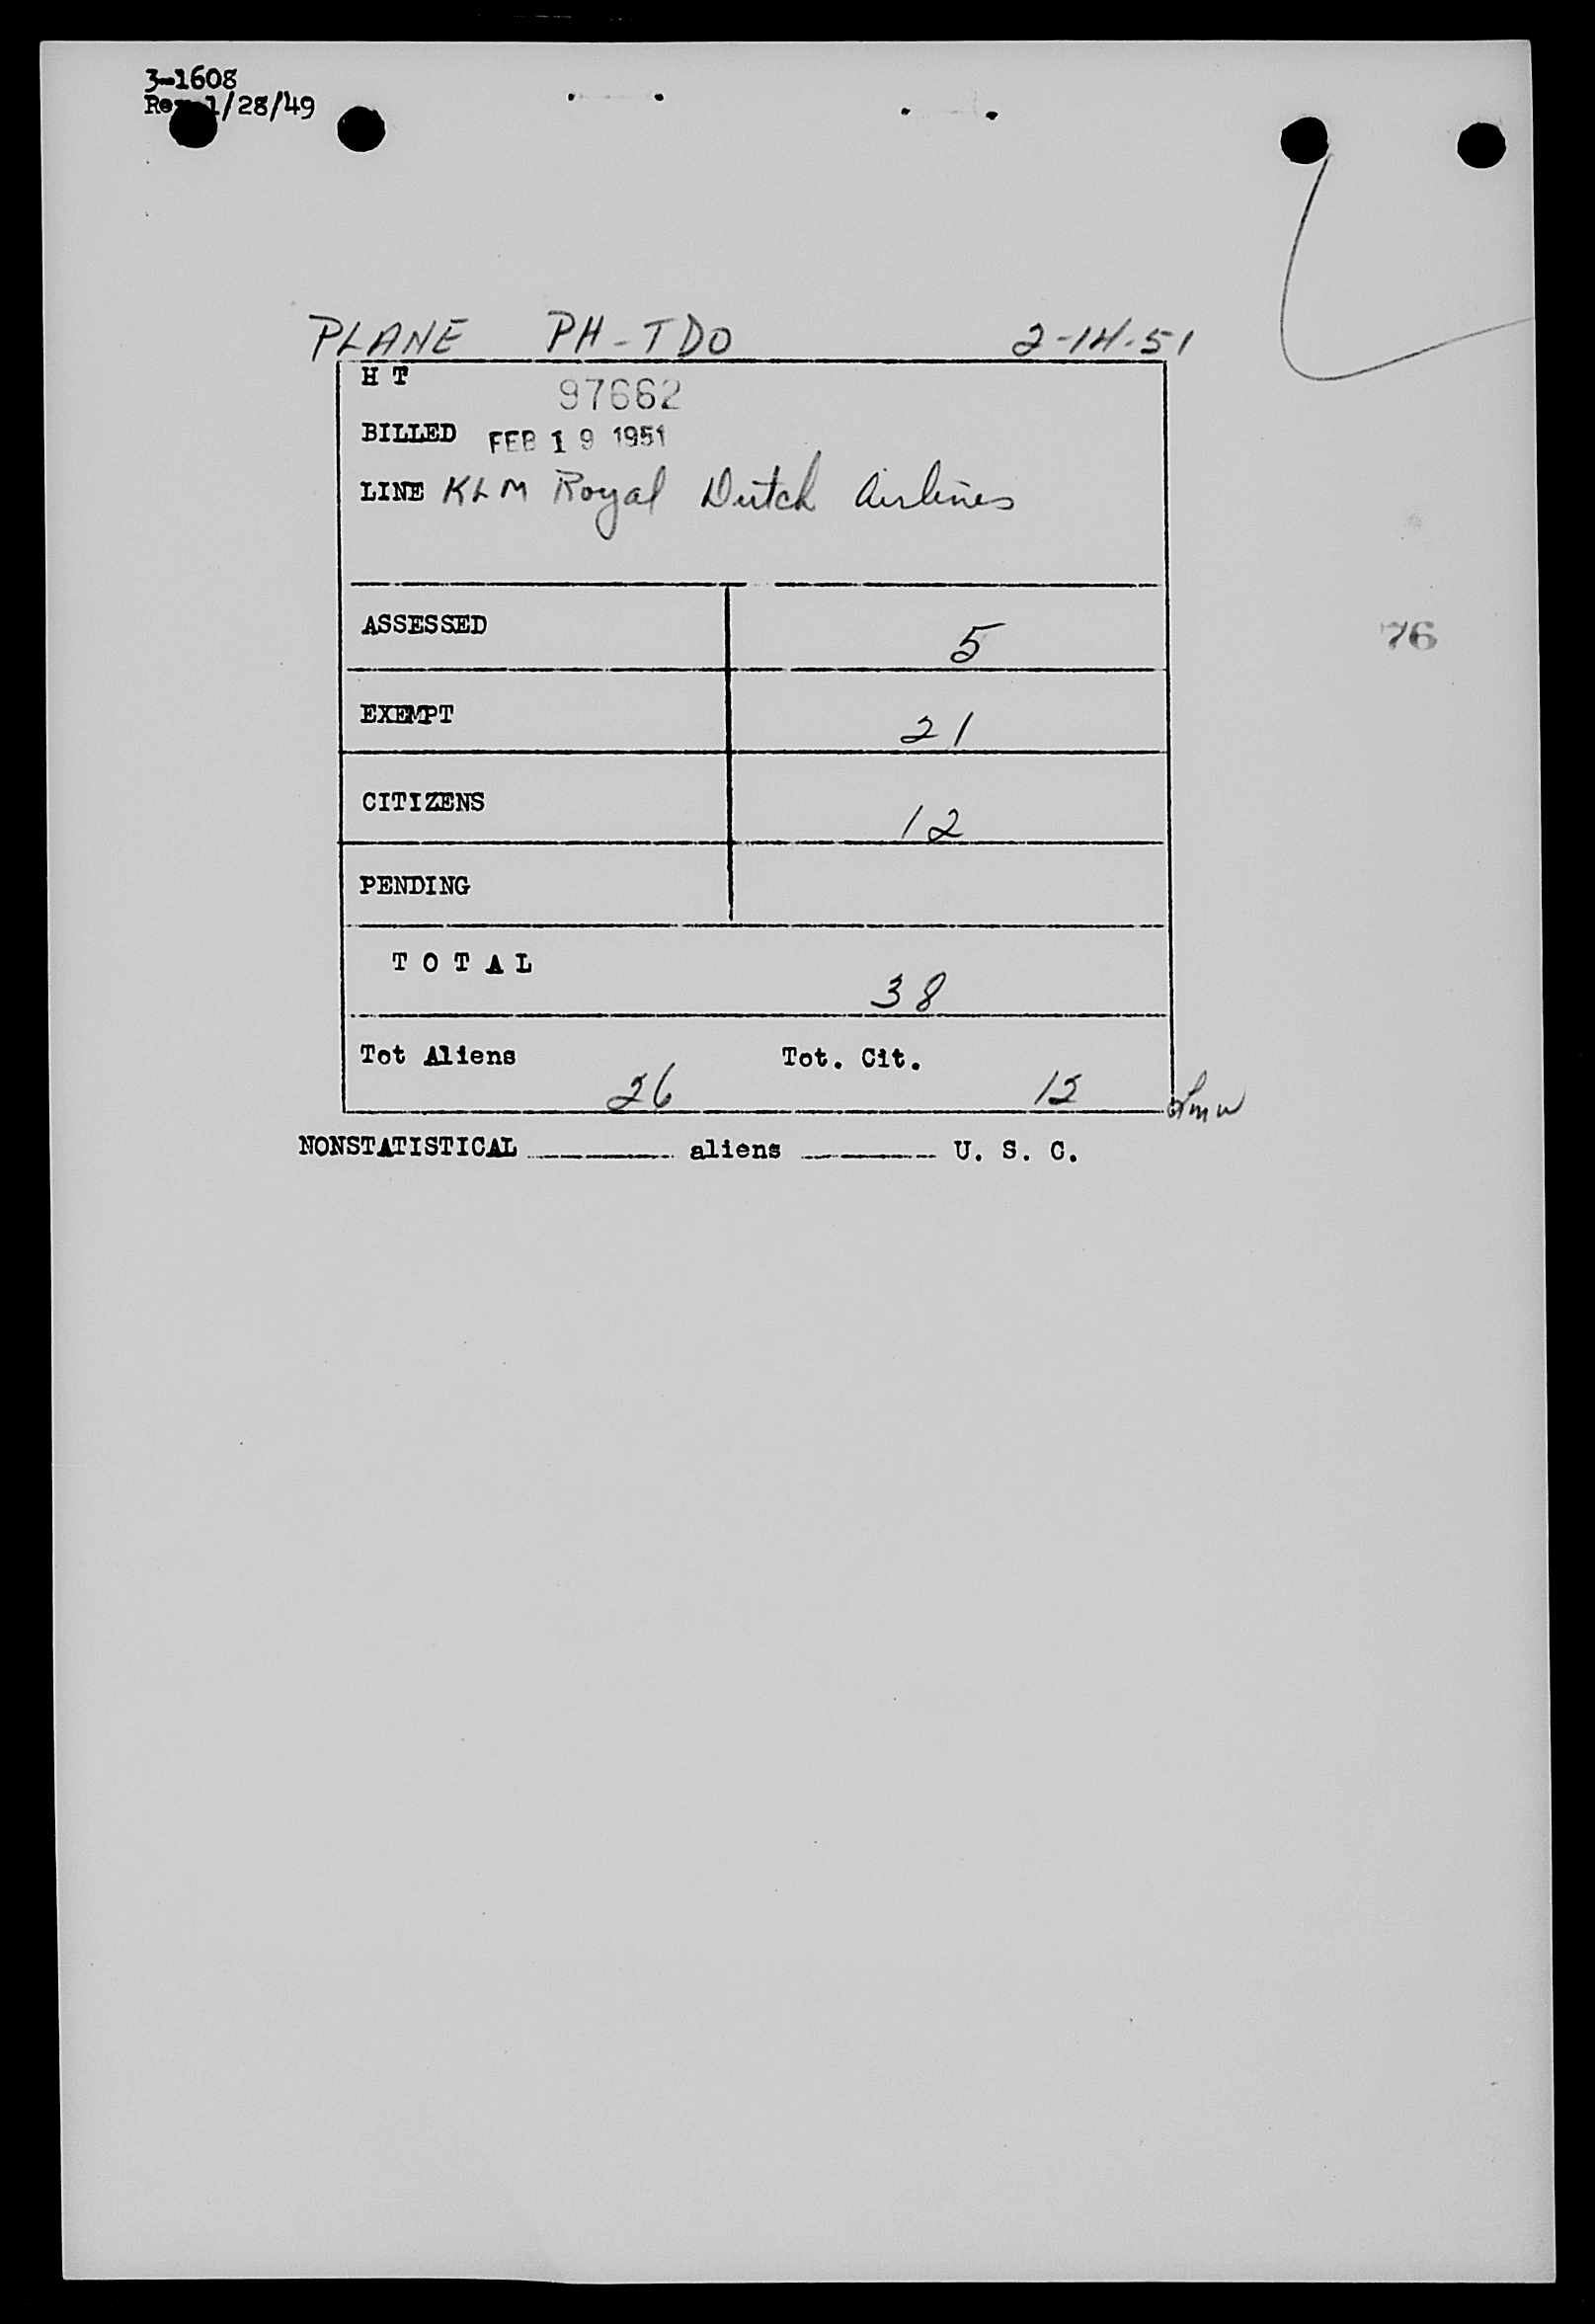 3-1608
Rev 1/28/49
PLANE PH-TDO 2-14-51
H T 97662
BILLED FEB 19 1951
LINE KLM Royal Dutch Airlines
ASSESSED 5
76
EXEMPT 21
CITIZENS 12
PENDING
TOTAL 38
Tot Aliens 26 Tot. Cit. 12
NONSTATISTICAL aliens U. S. C.